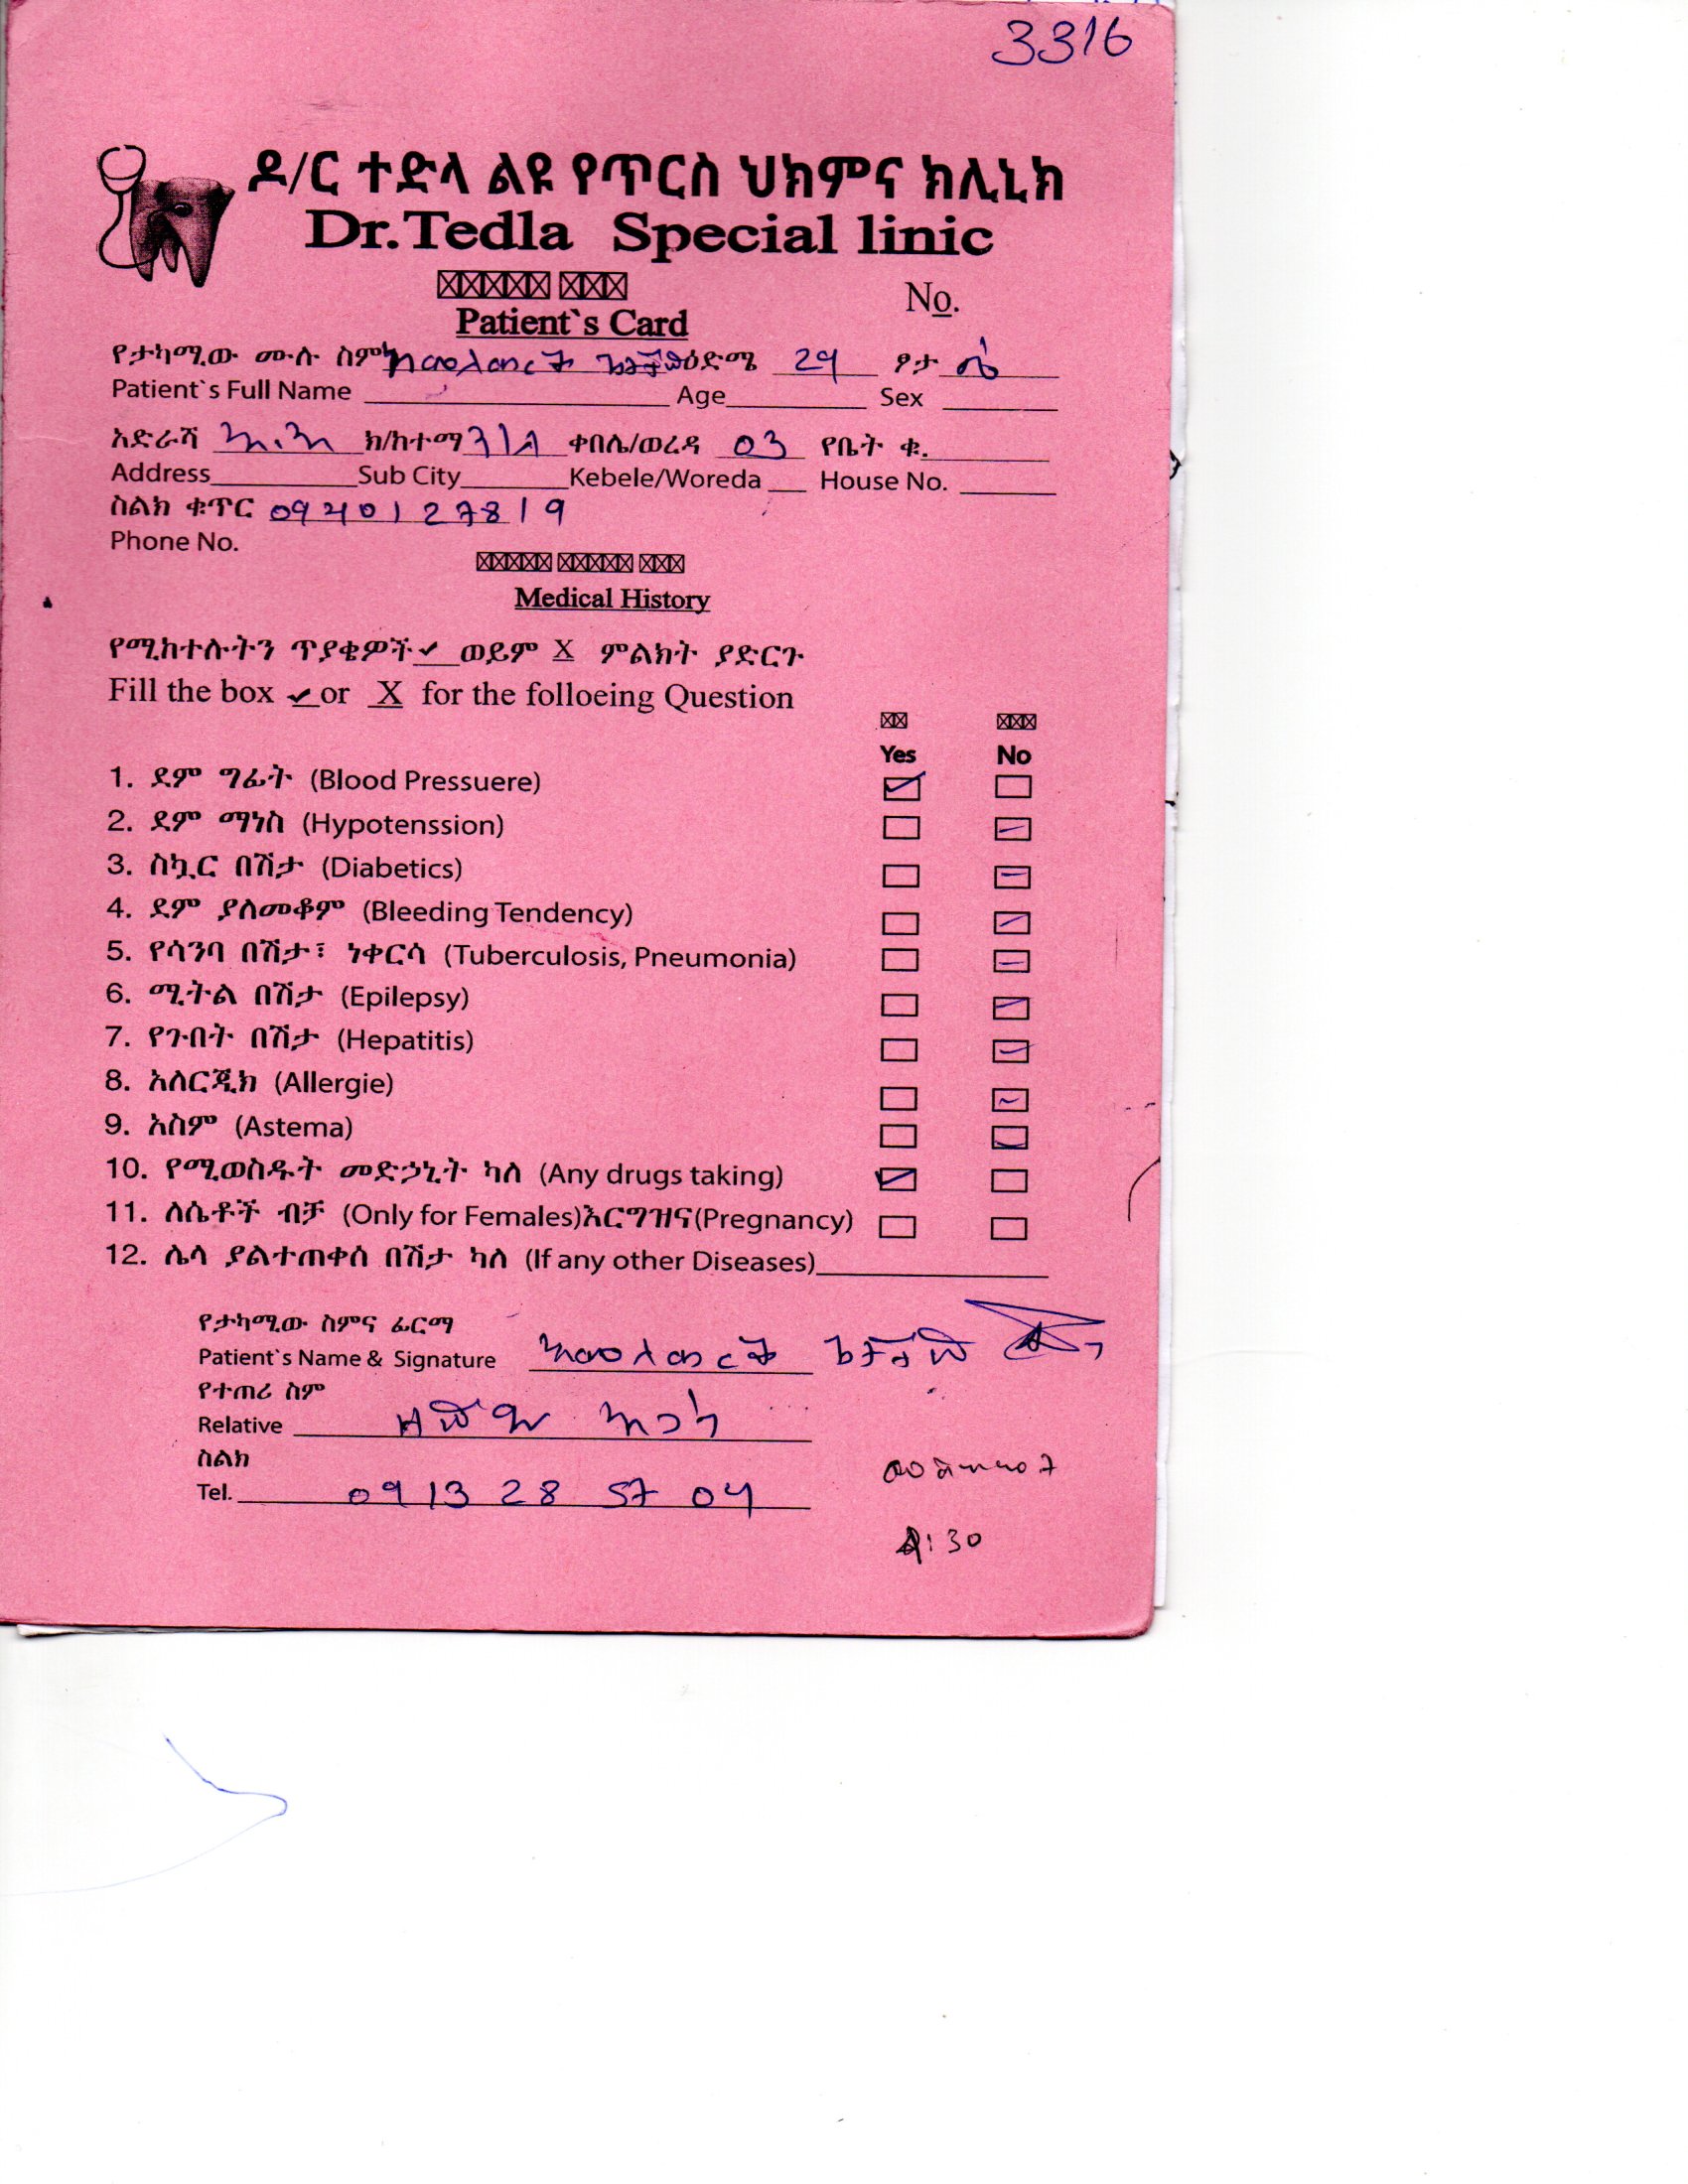 3316
ዶ/ር ተድላ ልዩ የጥርስ ህክምና ክሊኒክ
Dr.Tedla Special linic
No.
Patient`s Card
የታካሚው ሙሉ ስም ዕድሜ 29 ፆታ ሴ
Patient`s Full Name Age Sex
አድራሻ አ.አ ክ/ከተማ ቀበሌ/ወረዳ 03 የቤት ቁ.
Address Sub City Kebele/Woreda House No.
ስልክ ቁጥር 0940127819
Phone No.
Medical History
የሚከተሉትን ጥያቄዎች ✓ ወይም X ምልክት ያድርጉ
Fill the box ✓ or X for the folloeing Question
Yes No
1. ደም ግፊት (Blood Pressuere)
2. ደም ማነስ (Hypotenssion)
3. ስኳር በሽታ (Diabetics)
4. ደም ያለመቆም (Bleeding Tendency)
5. የሳንባ በሽታ፣ ነቀርሳ (Tuberculosis, Pneumonia)
6. ሚትል በሽታ (Epilepsy)
7. የጉበት በሽታ (Hepatitis)
8. አለርጂክ (Allergie)
9. አስም (Astema)
10. የሚወስዱት መድኃኒት ካለ (Any drugs taking)
11. ለሴቶች ብቻ (Only for Females)እርግዝና(Pregnancy)
12. ሌላ ያልተጠቀሰ በሽታ ካለ (If any other Diseases)
የታካሚው ስምና ፊርማ
Patient`s Name & Signature
የተጠሪ ስም
Relative
ስልክ
Tel. 0913 28 57 04
:30